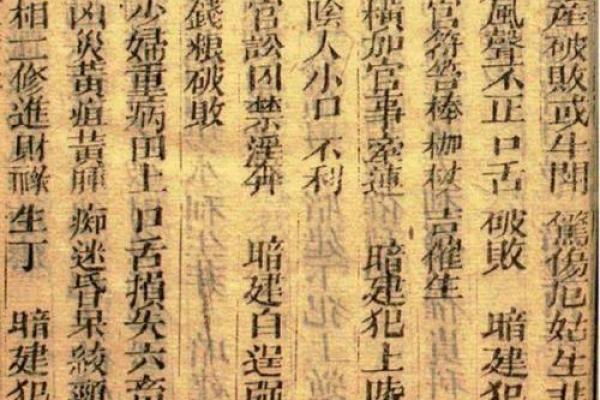 產破敗或牛 驚傷尼姑生非
風聲不正口舌 破敗 暗建犯
官符笞棒枷杖吉催生
橫加官事牽連 暗建犯上
陰人小口不利
官訟囚禁淫奔 暗建白
錢粮破敗
少婦重病田土口舌損失六畜
凶災黃疸黃腫痴迷昏呆
相二修進財祿生丁 暗建犯